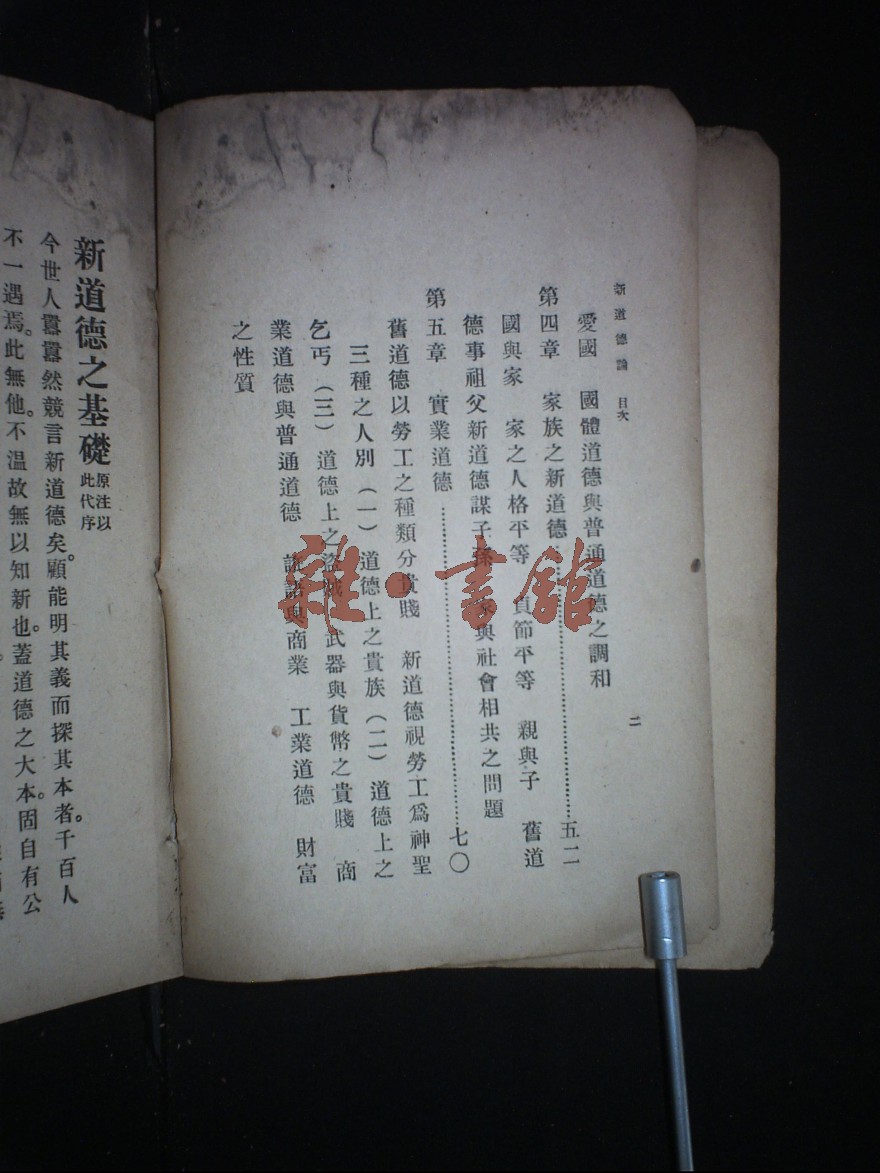 新道德論　目次
二
愛國　國體道德與普通道德之調和
第四章　家族之新道德……五二
國與家　家之人格平等　貞節平等　親與子　舊道
德事祖父新道德謀子孫　家與社會相共之問題
第五章　實業道德……七〇
舊道德以勞工之種類分貴賤　新道德視勞工爲神聖
三種之人別（一）道德上之貴族（二）道德上之
乞丐（三）道德上之盜賊　武器與貨幣之貴賤　商
業道德與普通道德　語與商業　工業道德　財富
之性質
新道德之基礎 原注以此代序
今世人囂囂然競言新道德矣。顧能明其義而探其本者。千百人
不一遇焉。此無他。不溫故無以知新也。蓋道德之大本。固自有公
雜·書館